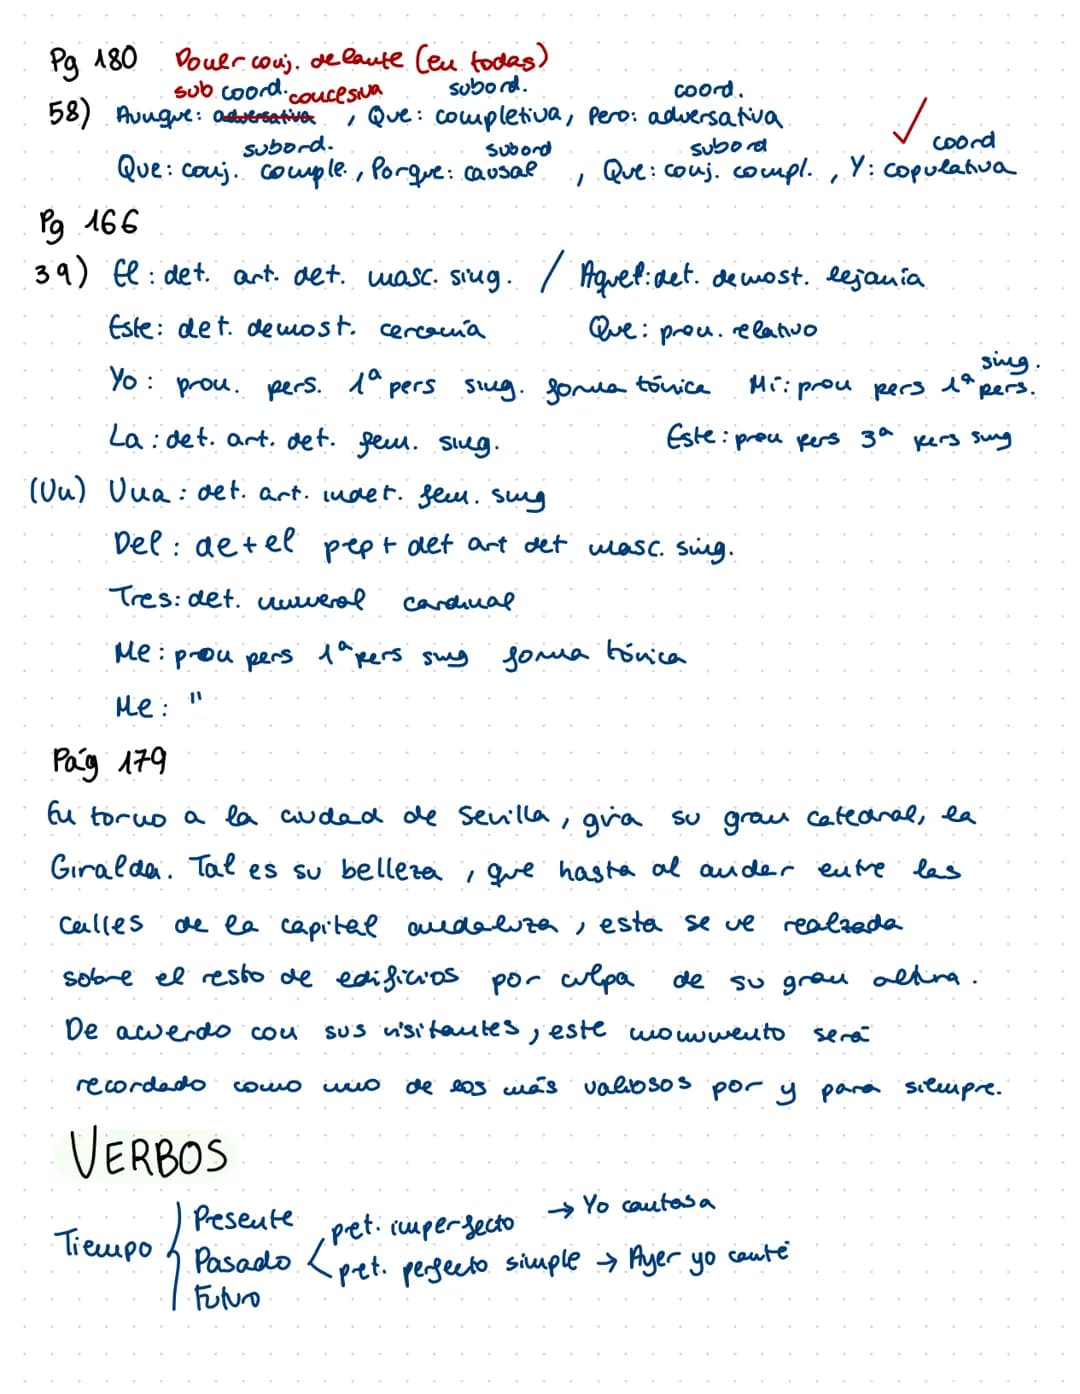 Pg 180 Poner conj. delante (en todas)
sub coord. concesiva subord. coord.
58) Aunque: adversativa, Que: completiva, Pero: adversativa
subord. subord subord coord
Que: conj. comple., Porque: causal, Que: conj. compl., Y: copulativa
Pg 166
39) El: det. art. det. masc. sing. / Aquel: det. demost. lejanía
Este: det. demost. cercanía Que: pron. relativo
Yo: pron. pers. 1ª pers sing. forma tónica Mí: pron pers 1ª pers. sing.
La: det. art. det. fem. sing. Este: pron pers 3ª pers sing
(Un) Una: det. art. indet. fem. sing
Del: de+el prep + det art det masc. sing.
Tres: det. numeral cardinal
Me: pron pers 1ª pers sing forma tónica
Me: "
Pág 179
En torno a la ciudad de Sevilla, gira su gran catedral, la
Giralda. Tal es su belleza, que hasta al andar entre las
calles de la capital andaluza, esta se ve realzada
sobre el resto de edificios por culpa de su gran altura.
De acuerdo con sus visitantes, este monumento será
recordado como uno de los más valiosos por y para siempre.
VERBOS
Tiempo
Presente
Pasado
Futuro
pret. imperfecto → Yo cantaba
pret. perfecto simple → Ayer yo canté